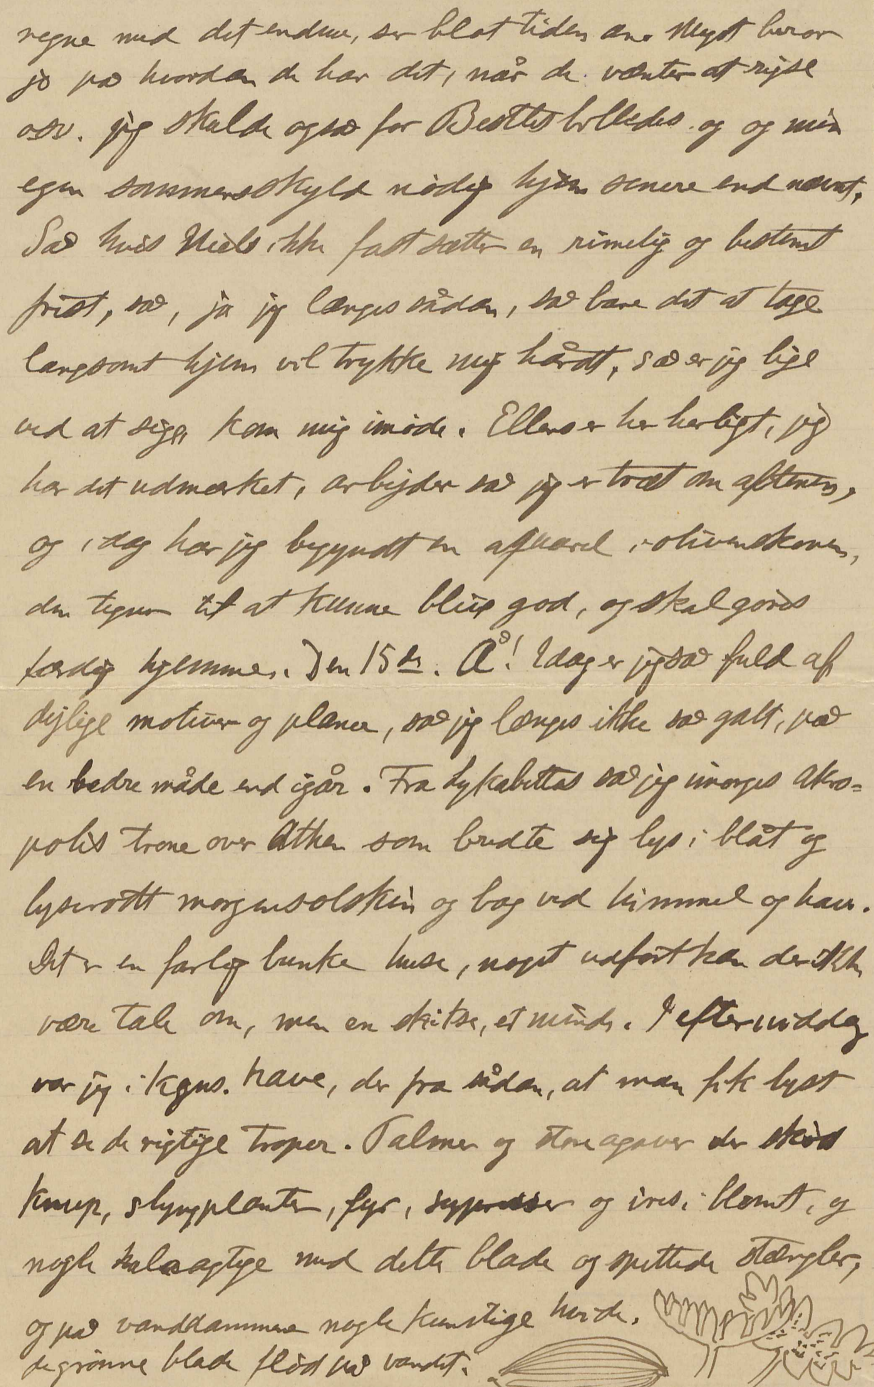 regne med det endnu, ser blot tiden an. Meget beror
jo på hvordan de har det, når de venter at rejse
osv. jeg skulde også for Billedes og og min
egen sommers skyld nødig hjem senere end nævnt.
Så hvis Niels ikke fastsætter en rimelig og bestemt
frist, så, ja jeg længes sådan, så bare det at tage
langsomt hjem vil trykke mig hårdt, så er jeg lige
ved at sige kom mig imøde. Ellers er her herligt, jeg
har det udmærket, arbejder så jeg er træt om aftenen,
og idag har jeg begyndt en aquarel i olivenskoven,
den tegner til at kunne blive god, og skal gøres
færdig hjemme. Den 15de. Å! Idag er jeg så fuld af
dejlige motiver og planer, så jeg længes ikke så galt, på
en bedre måde end igår. Fra Lykabettos så jeg imorges Akro=
polis trone over Athen som bredte sig lys i blåt og
lyserødt morgensolskin og bag ved himmel og hav.
Det er en farlig bunke huse, noget udført kan der ikke
være tale om, men en skitse, et minde. I eftermiddag
var jeg i kgns. have, der fra sådan, at man fik lyst
at se de rigtige troper. Palmer og store agaver der skød
knup, slyngplanter, fyr, sypresser og iris i blomst, og
nogle med delte blade og spettede stængler,
og på vanddammene nogle kunstige hvide.
de grønne blade flød på vandet.